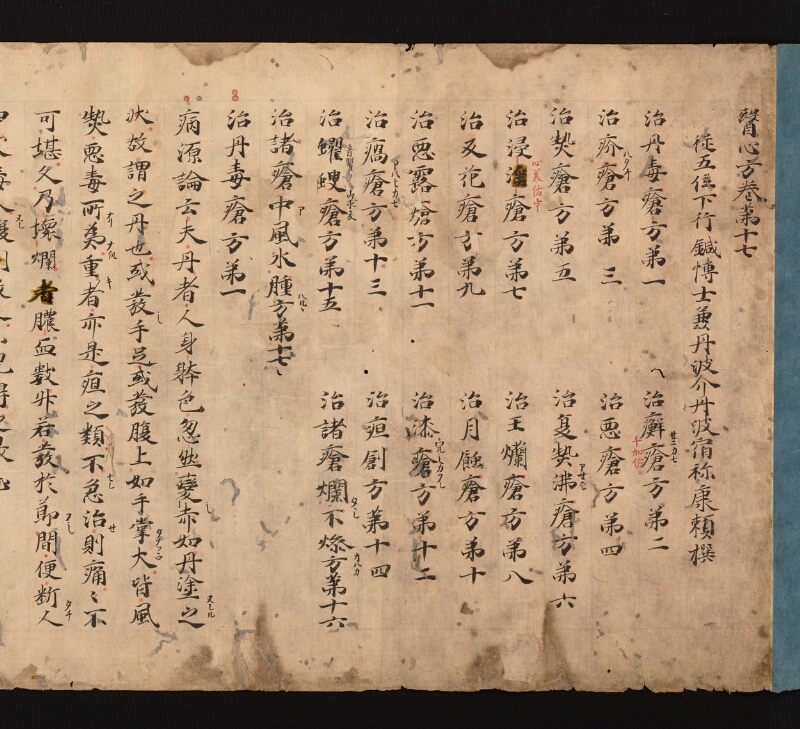 醫心方卷第十七
従五位下行鍼博士兼丹波介丹波宿祢康頼撰
治丹毒瘡方第一 治癬瘡方第二
治疥瘡方第三 治悪瘡方第四
治熱瘡方第五 治夏熱沸瘡方第六
治浸淫瘡方第七 治王爛瘡方第八
治反花瘡方第九 治月蝕瘡方第十
治悪露瘡方第十一 治漆瘡方第十二
治瘑瘡方第十三 治疽創方第十四
治蠼螋瘡方第十五 治諸瘡爛不燥方第十六
治諸瘡中風水腫方第十七
治丹毒瘡方第一
病源論云夫丹者人身躰色忽然變赤如丹塗之
状故謂之丹也或發手足或發腹上如手掌大皆風
熱悪毒所為重者亦是疽之類不急治則痛々不
可堪久乃壊爛者膿血數升若發於節間便断人